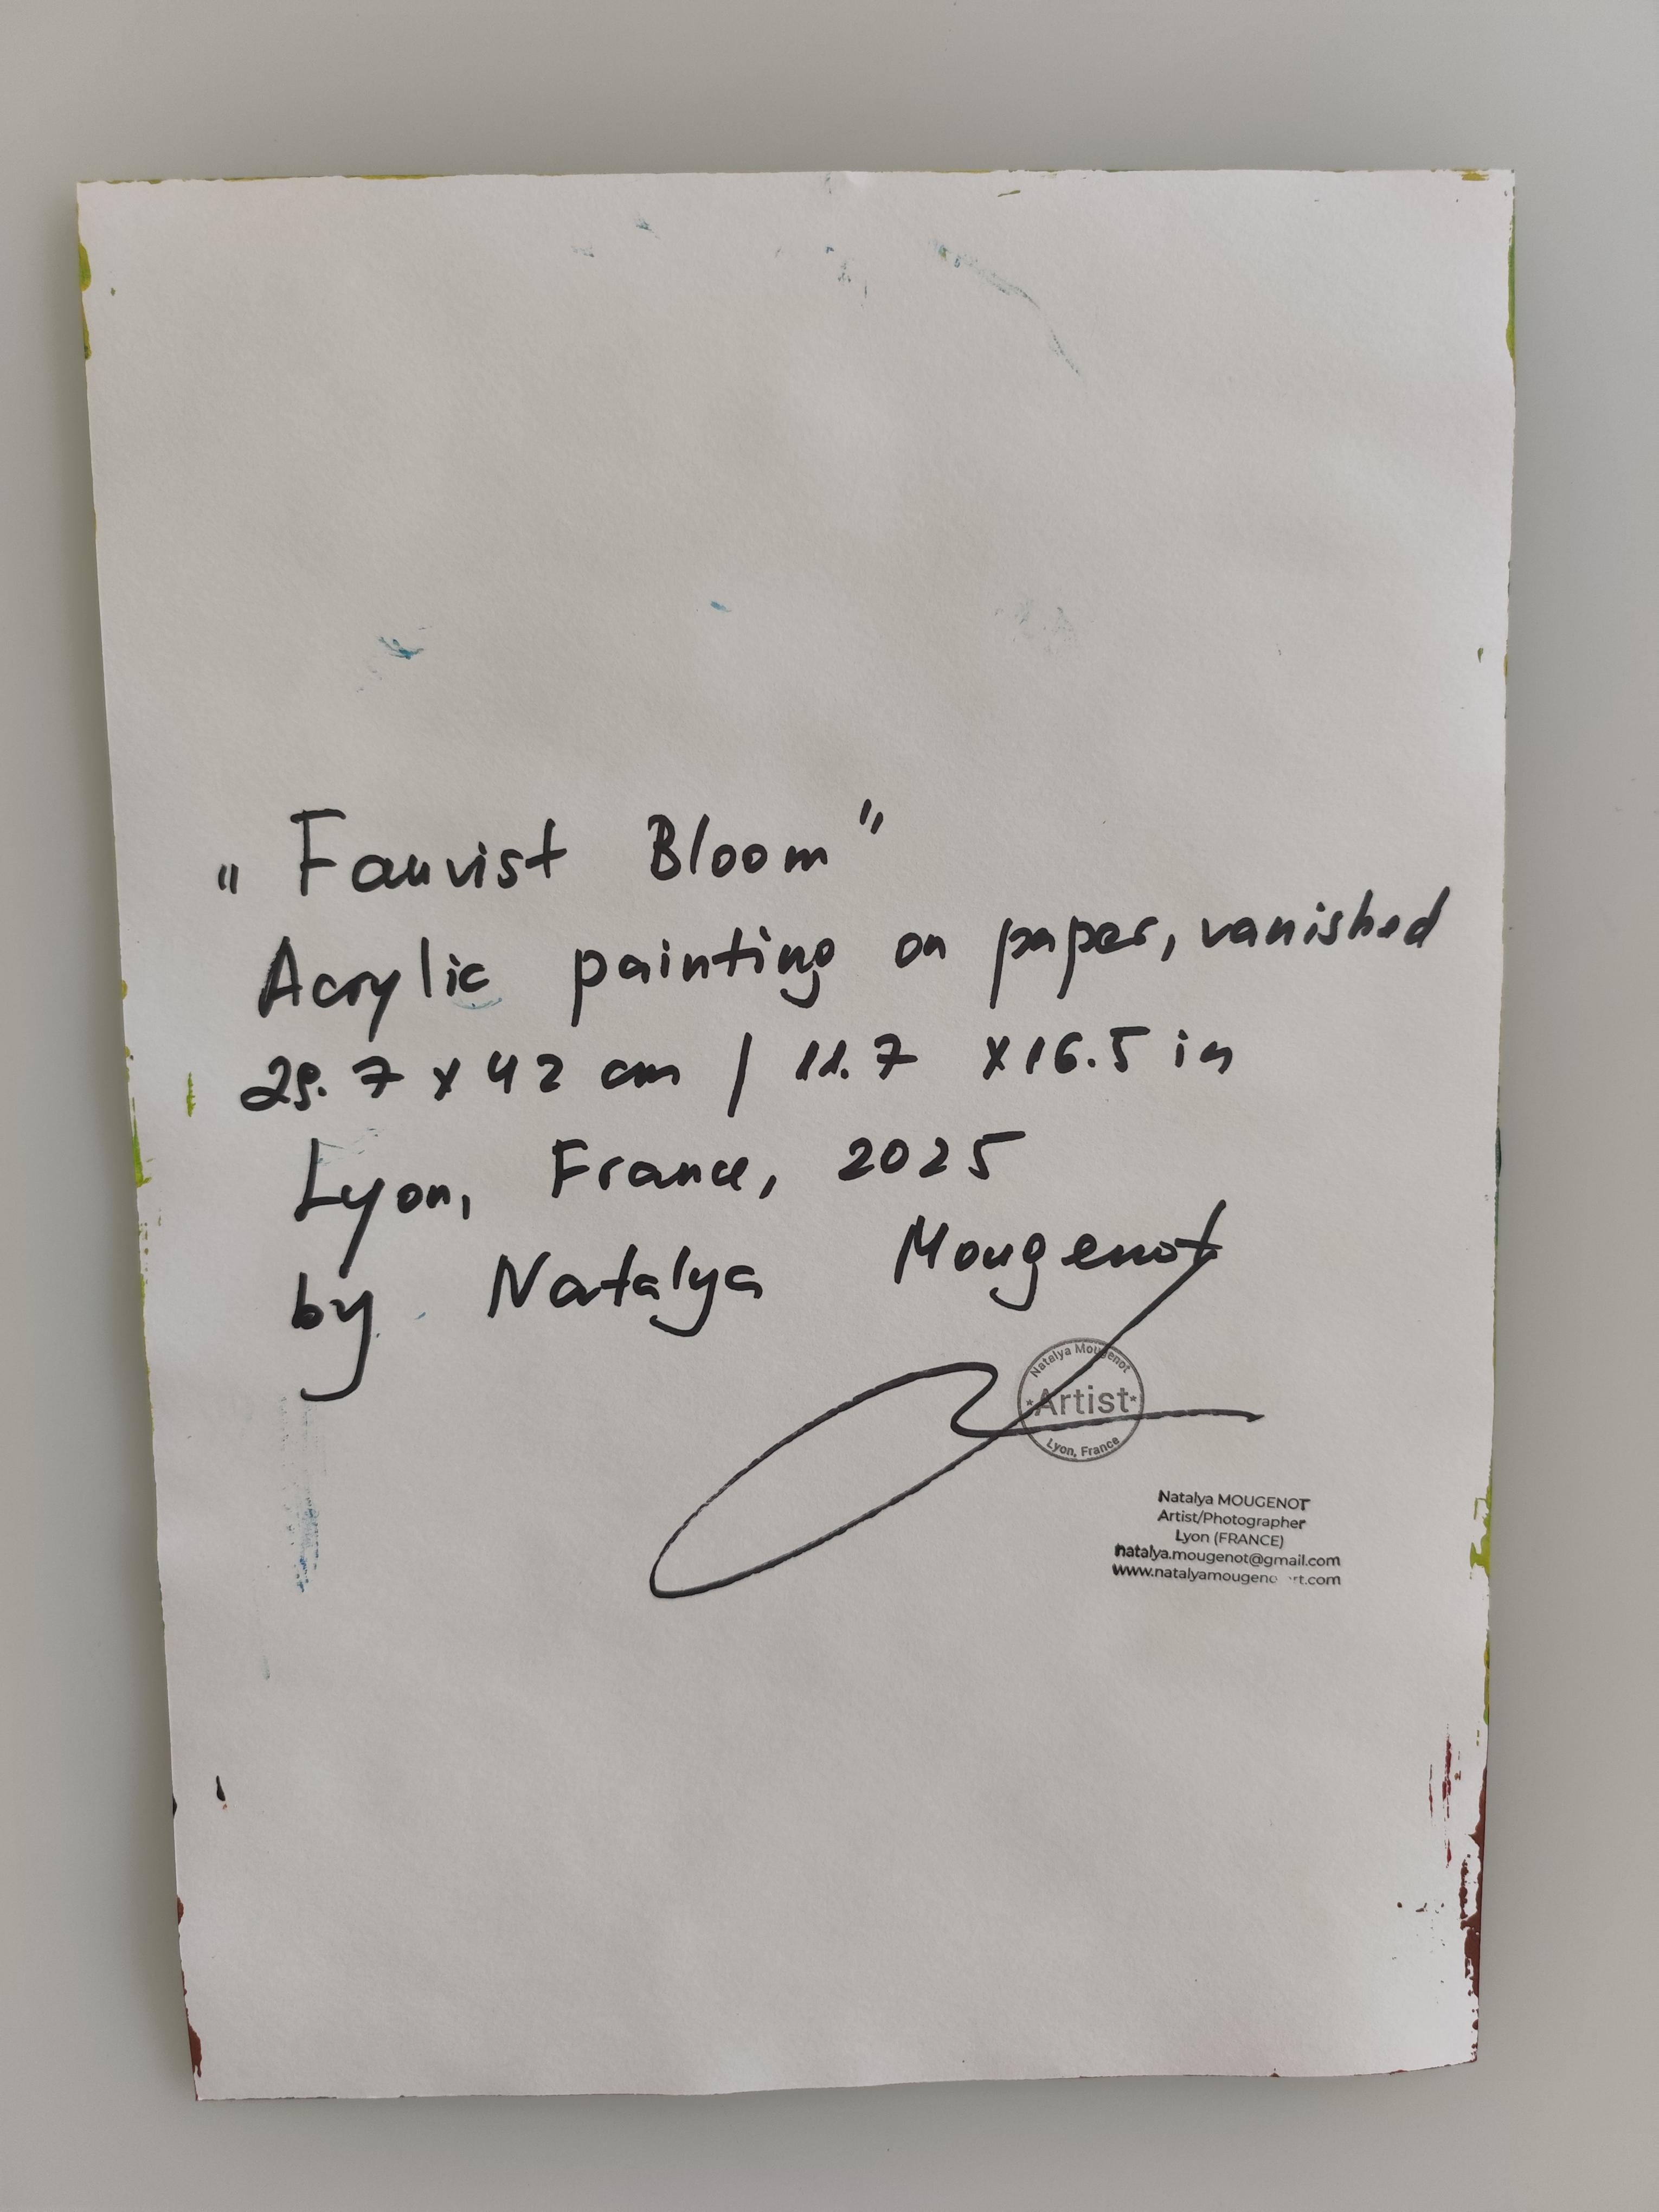 "Fauvist Bloom"
Acrylic painting on paper, vanished
29.7 x 42 cm / 11.7 x 16.5 in
Lyon, France, 2025
by Natalya Mougenot
Natalya Mougenot
*Artist*
Lyon, France
Natalya MOUGENOT
Artist/Photographer
Lyon (FRANCE)
natalya.mougenot@gmail.com